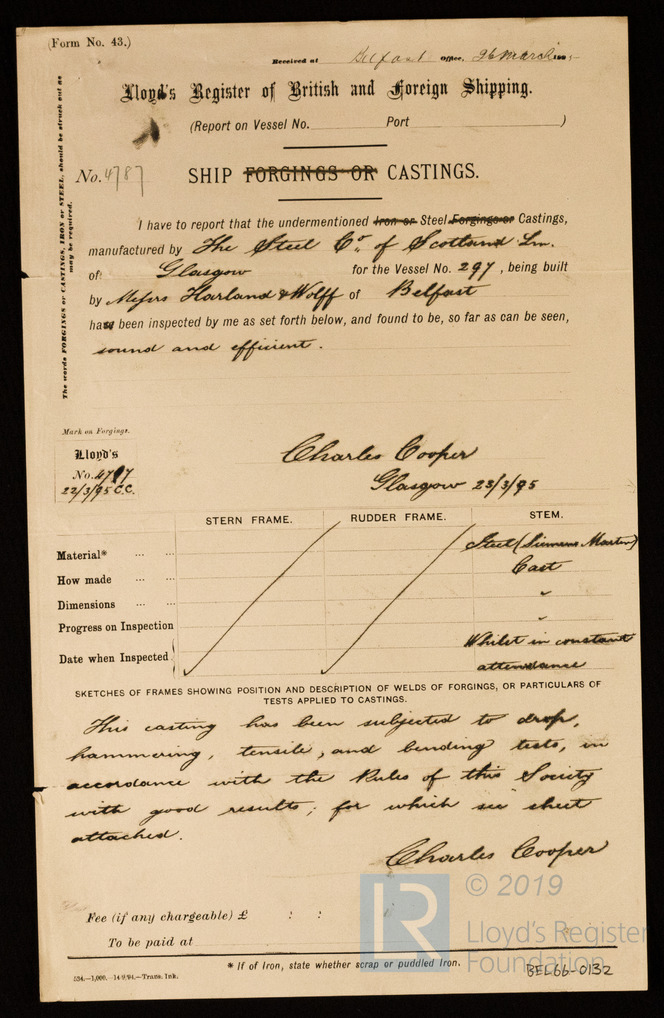 (Form No. 43.)
Received at Belfast Office, 26 March 1895
Lloyd's Register of British and Foreign Shipping.
(Report on Vessel No. Port )
No. 4787
SHIP FORGINGS OR CASTINGS.
The words FORGINGS or CASTINGS, IRON or STEEL, should be struck out as
may be required.
I have to report that the undermentioned Iron or Steel Forgings or Castings,
manufactured by The Steel Co. of Scotland Lm.
of Glasgow for the Vessel No. 297, being built
by Messrs Harland & Wolff of Belfast
has been inspected by me as set forth below, and found to be, so far as can be seen,
sound and efficient.
Mark on Forgings.
Lloyd's
No. 4787
22/3/95 C.C.
Charles Cooper
Glasgow 23/3/95
STERN FRAME. RUDDER FRAME. STEM.
Material* ... ... Steel (Siemens Martin)
How made ... ... Cast
Dimensions ... ... "
Progress on Inspection "
Date when Inspected Whilst in constant
attendance
SKETCHES OF FRAMES SHOWING POSITION AND DESCRIPTION OF WELDS OF FORGINGS, OR PARTICULARS OF
TESTS APPLIED TO CASTINGS.
This casting has been subjected to drop,
hammering, tensile, and bending tests, in
accordance with the Rules of this Society
with good results; for which see sheet
attached.
Charles Cooper
Fee (if any chargeable) £ : :
To be paid at
* If of Iron, state whether scrap or puddled Iron.
534.—1,000.—14/9/94.—Trans. Ink.
LR
© 2019
Lloyd's Register
Foundation
BEL66-0132